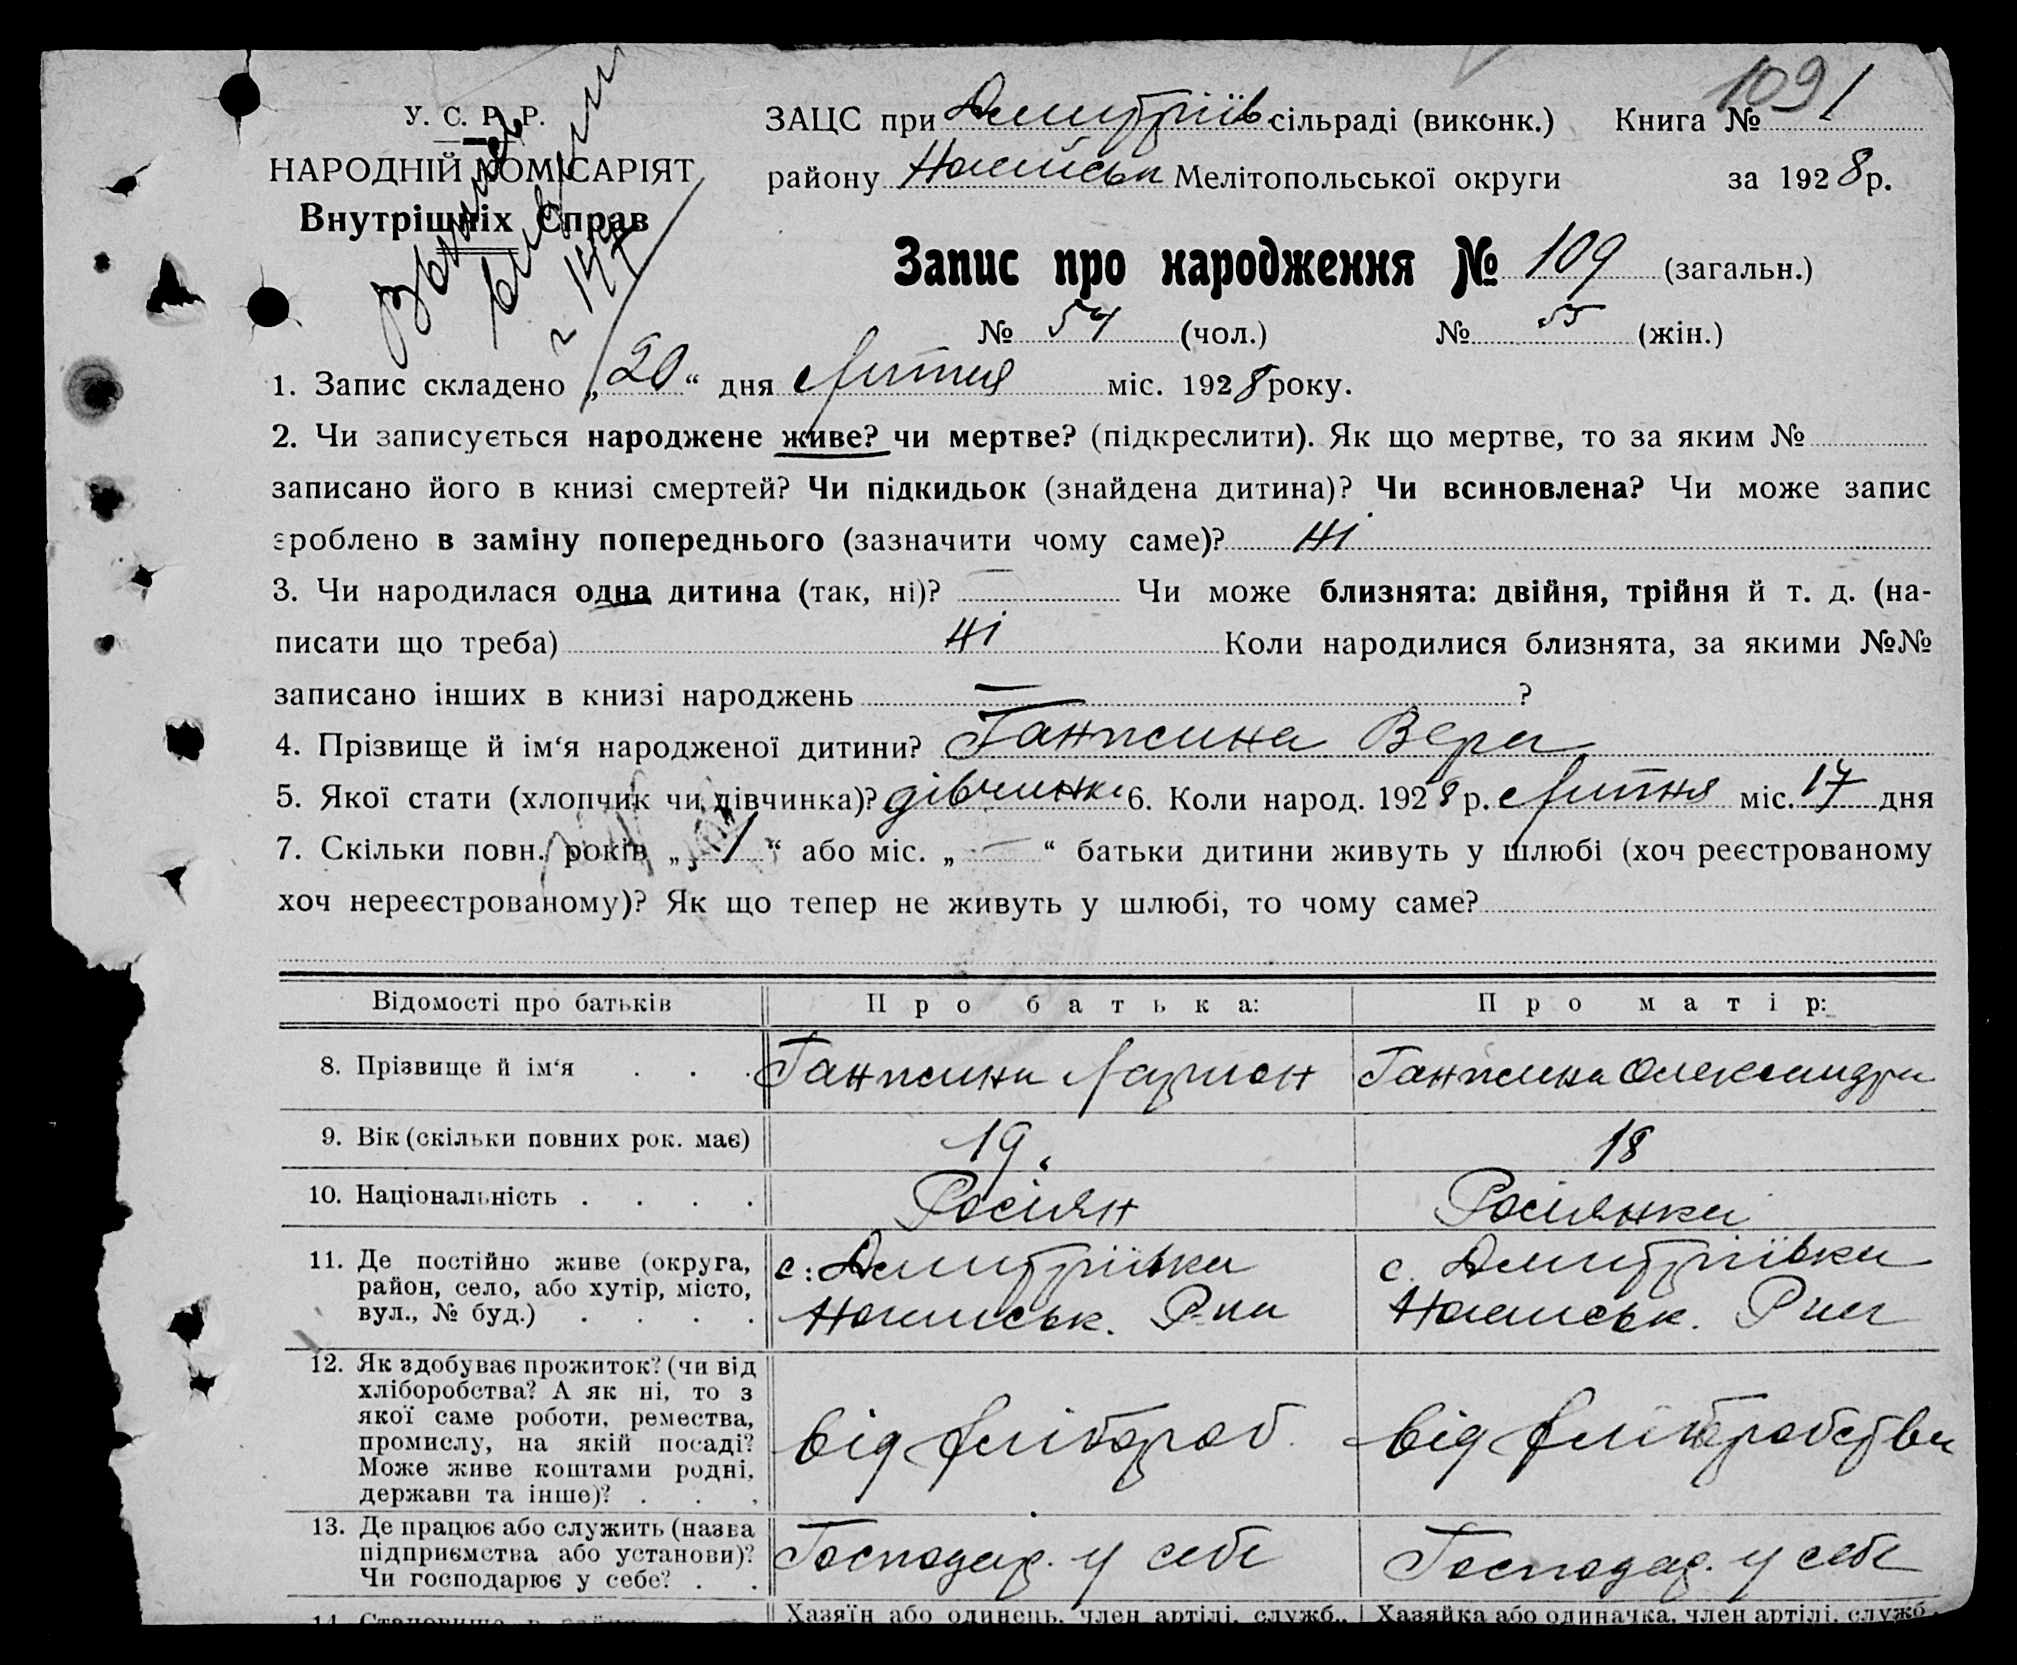 1091
У. С. Р. Р.
НАРОДНІЙ КОМІСАРІЯТ
Внутрішніх Справ
ЗАЦС при Дмитріїв сільраді (виконк.) Книга № 1
району Ногайськ Мелітопольської округи за 1928 р.
Запис про народження № 109 (загальн.)
№ 54 (чол.) № 55 (жін.)
1. Запис складено „20“ дня Липня міс. 1928 року.
2. Чи записується народжене живе? чи мертве? (підкреслити). Як що мертве, то за яким №
записано його в книзі смертей? Чи підкидьок (знайдена дитина)? Чи всиновлена? Чи може запис
зроблено в заміну попереднього (зазначити чому саме)? Ні
3. Чи народилася одна дитина (так, ні)? — Чи може близнята: двійня, трійня й т. д. (на-
писати що треба) Ні Коли народилися близнята, за якими №№
записано інших в книзі народжень — ?
4. Прізвище й ім‘я народженої дитини? Ганжина Вера
5. Якої стати (хлопчик чи дівчинка)? дівчинка 6. Коли народ. 1928 р. Липня міс. 17 дня
7. Скільки повн. років „1“ або міс. „—“ батьки дитини живуть у шлюбі (хоч реєстрованому
хоч нереєстрованому)? Як що тепер не живуть у шлюбі, то чому саме?
Відомості про батьків Про батька: Про матір:
8. Прізвище й ім‘я . . . Ганжина Ларион Ганжина Олександра
9. Вік (скільки повних рок. має) 19. 18
10. Національність . . . . Росіян Росіянка
11. Де постійно живе (округа,
район, село, або хутір, місто,
вул., № буд.) . . . .
с. Дмитріївка
Ногайськ. Р-на
с. Дмитріївка
Ногайськ. Р-на
12. Як здобуває прожиток? (чи від
хліборобства? А як ні, то з
якої саме роботи, ремества,
промислу, на якій посаді?
Може живе коштами родні,
держави та інше)? . . .
від хлібороб. від хліборобства
13. Де працює або служить (назва
підприємства або установи)?
Чи господарює у себе? . .
Господар. у себе Господар. у себе
Хазяїн або одинець, член артілі, служб., Хазяйка або одиначка, член артілі, служб.